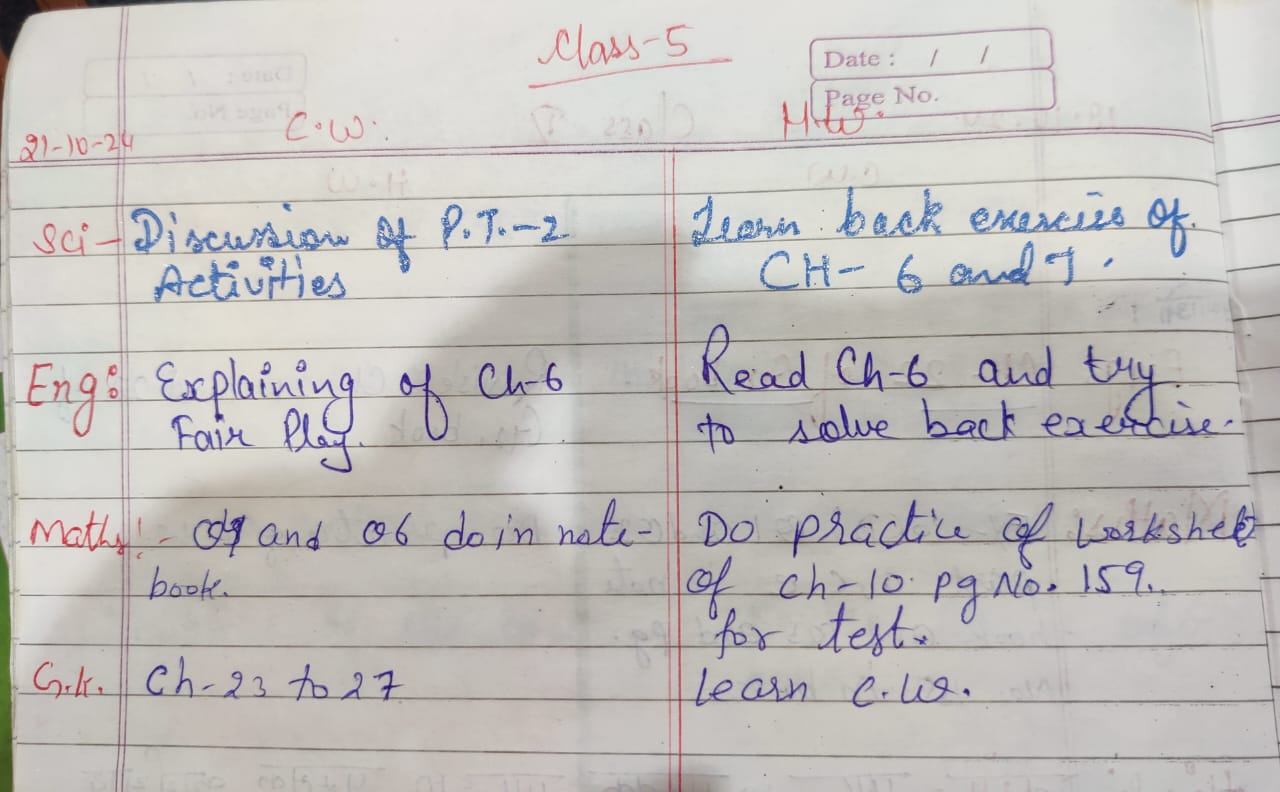 Class-5
Date : / /
Page No.
21-10-24 C.W. H.W.
Sci- Discussion of P.T.-2 Learn back exercises of
Activities CH- 6 and 7.
Eng: Explaining of Ch-6 Read Ch-6 and try
Fair Play. to solve back exercise.
Maths:- and 06 do in note- Do practice of worksheet
book. of ch-10 pg No. 159.
for test.
G.k. Ch-23 to 27 learn c.w.